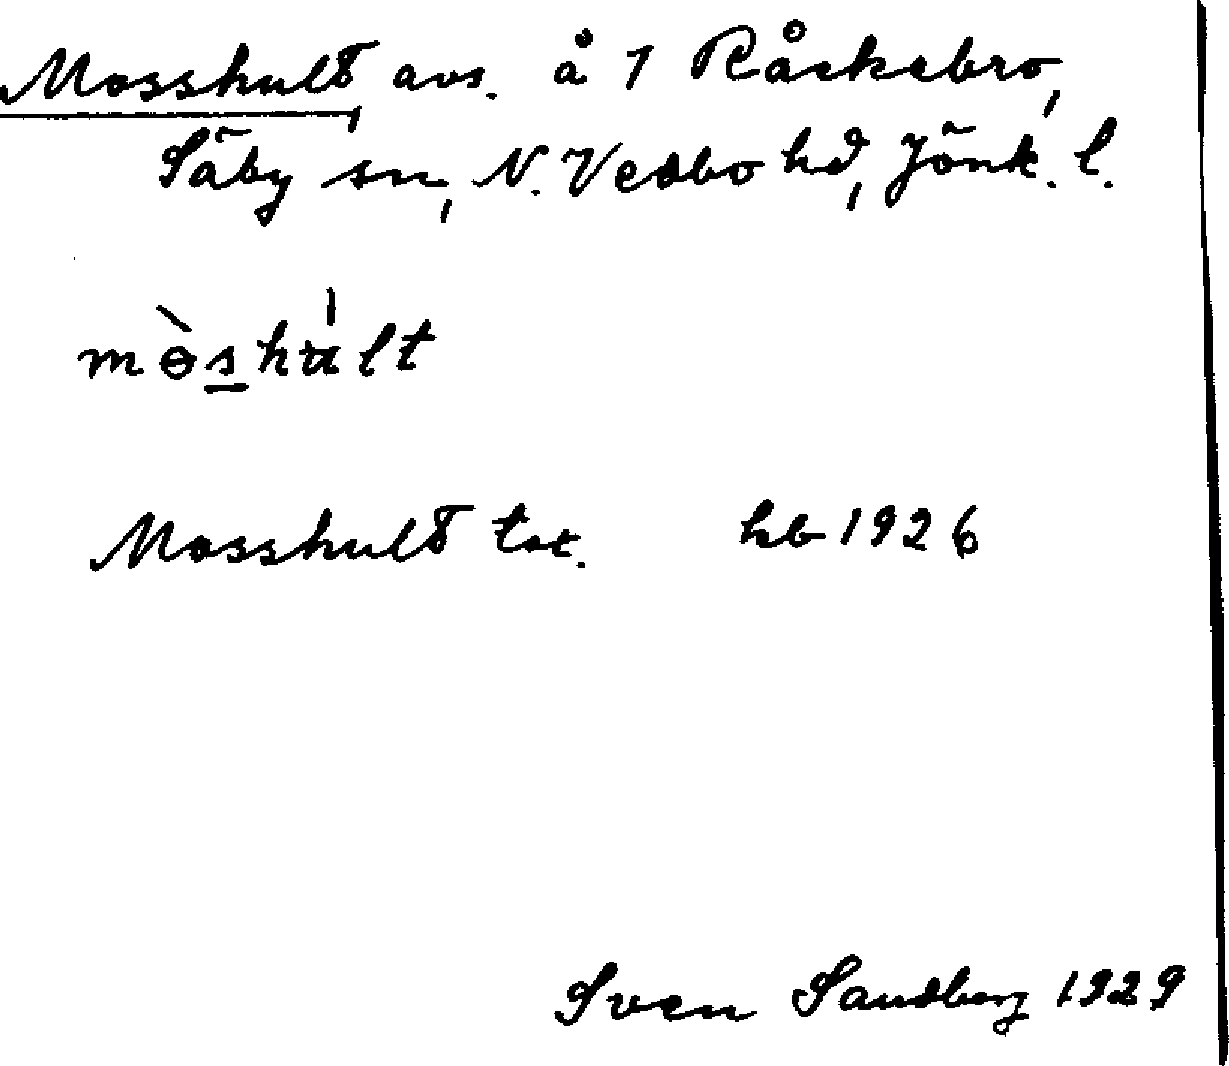 Mosshult, avs. å 1 Råckebro,
Säby sn, N. Vedbo hd, Jönk. l.
mɵ̀shu̇́lt
Mosshult tot. hb 1926
Sven Sandberg 1929